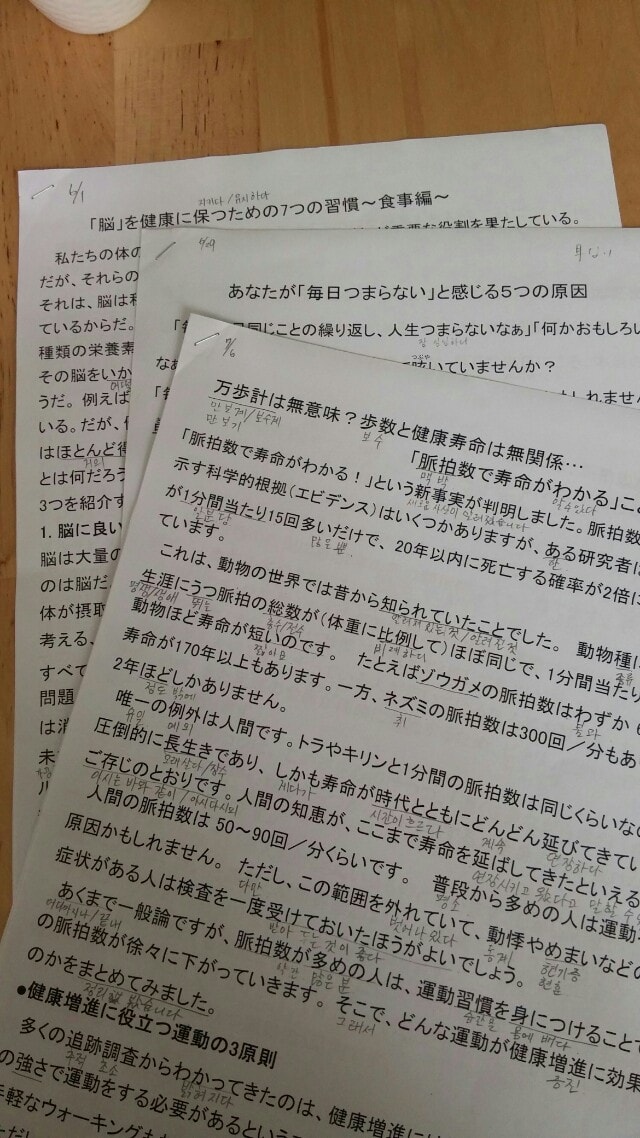 6/1
지키다/유지하다
「脳」を健康に保つための7つの習慣～食事編～
重要な役割を果たしている。
私たちの体の
だが、それらの
それは、脳は
ているからだ。
種類の栄養素
その脳をいか
うだ。例えば
いる。だが、
はほとんど
とは何だろう
3つを紹介す
1. 脳に良い
脳は大量の
のは脳だ
体が摂取
考える、
すべて
問題
は消
あなたが「毎日つまらない」と感じる5つの原因
同じことの繰り返し、人生つまらないなぁ」「何かおもしろい
呟いていませんか？
しれません
7/6
万歩計は無意味？歩数と健康寿命は無関係…
만보계/보수계
만보기
보수
「脈拍数で寿命がわかる」こ
맥박
「脈拍数で寿命がわかる！」という新事実が判明しました。脈拍数
示す科学的根拠（エビデンス）はいくつかありますが、ある研究者に
が1分間当たり15回多いだけで、20年以内に死亡する確率が2倍に
많을 뿐
ています。
これは、動物の世界では昔から知られていたことでした。 動物種に
生涯にうつ脈拍の総数が（体重に比例して）ほぼ同じで、1分間当たり
평생/생애
비례하다
종류
動物ほど寿命が短いのです。 たとえばゾウガメの脈拍数はわずか6
짧아요
寿命が170年以上もあります。一方、ネズミの脈拍数は300回／分もあ
쥐
2年ほどしかありません。
정도 밖에
唯一の例外は人間です。トラやキリンと1分間の脈拍数は同じくらいなの
유일
예외
圧倒的に長生きであり、しかも寿命が時代とともにどんどん延びてきてい
오래살다/장수
게다가
시간이 흐르다
계속
연장하다
ご存じのとおりです。人間の知恵が、ここまで寿命を延ばしてきたといえる
아시는 바와 같이/아시다시피
人間の脈拍数は 50～90回／分くらいです。 普段から多めの人は運動
평소
原因かもしれません。 ただし、この範囲を外れていて、動悸やめまいなどの
다만
벗어나 있다
동계
현기증
症状がある人は検査を一度受けておいたほうがよいでしょう。
あくまで一般論ですが、脈拍数が多めの人は、運動習慣を身につけることで
약간 많은 분
습관을
몸에 배다
の脈拍数が徐々に下がっていきます。そこで、どんな運動が健康増進に効果
그래서
증진
のかをまとめてみました。
●健康増進に役立つ運動の3原則
多くの追跡調査からわかってきたのは、健康増進には
추적 조사
밝혀지다
の強さで運動をする必要があるという
軽なウォーキング